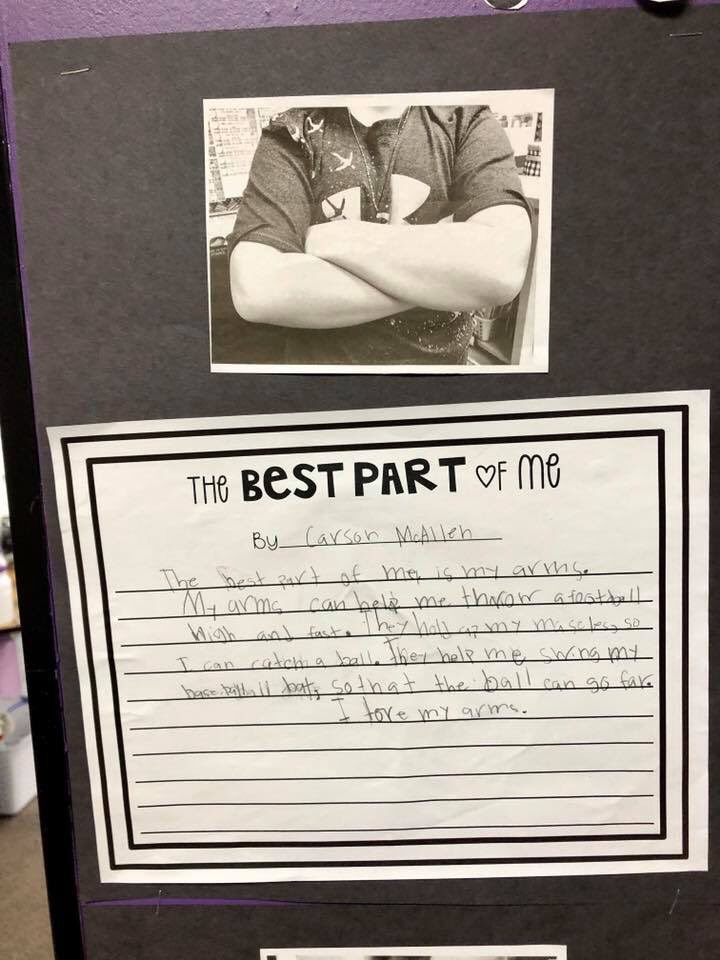 THE BEST PART OF ME
By Carson McAllen
The best part of me, is my arms.
My arms can help me throw a football
high and fast. They hold up my muscles, so
I can catch a ball. They help me swing my
baseball bat, so that the ball can go far.
I love my arms.